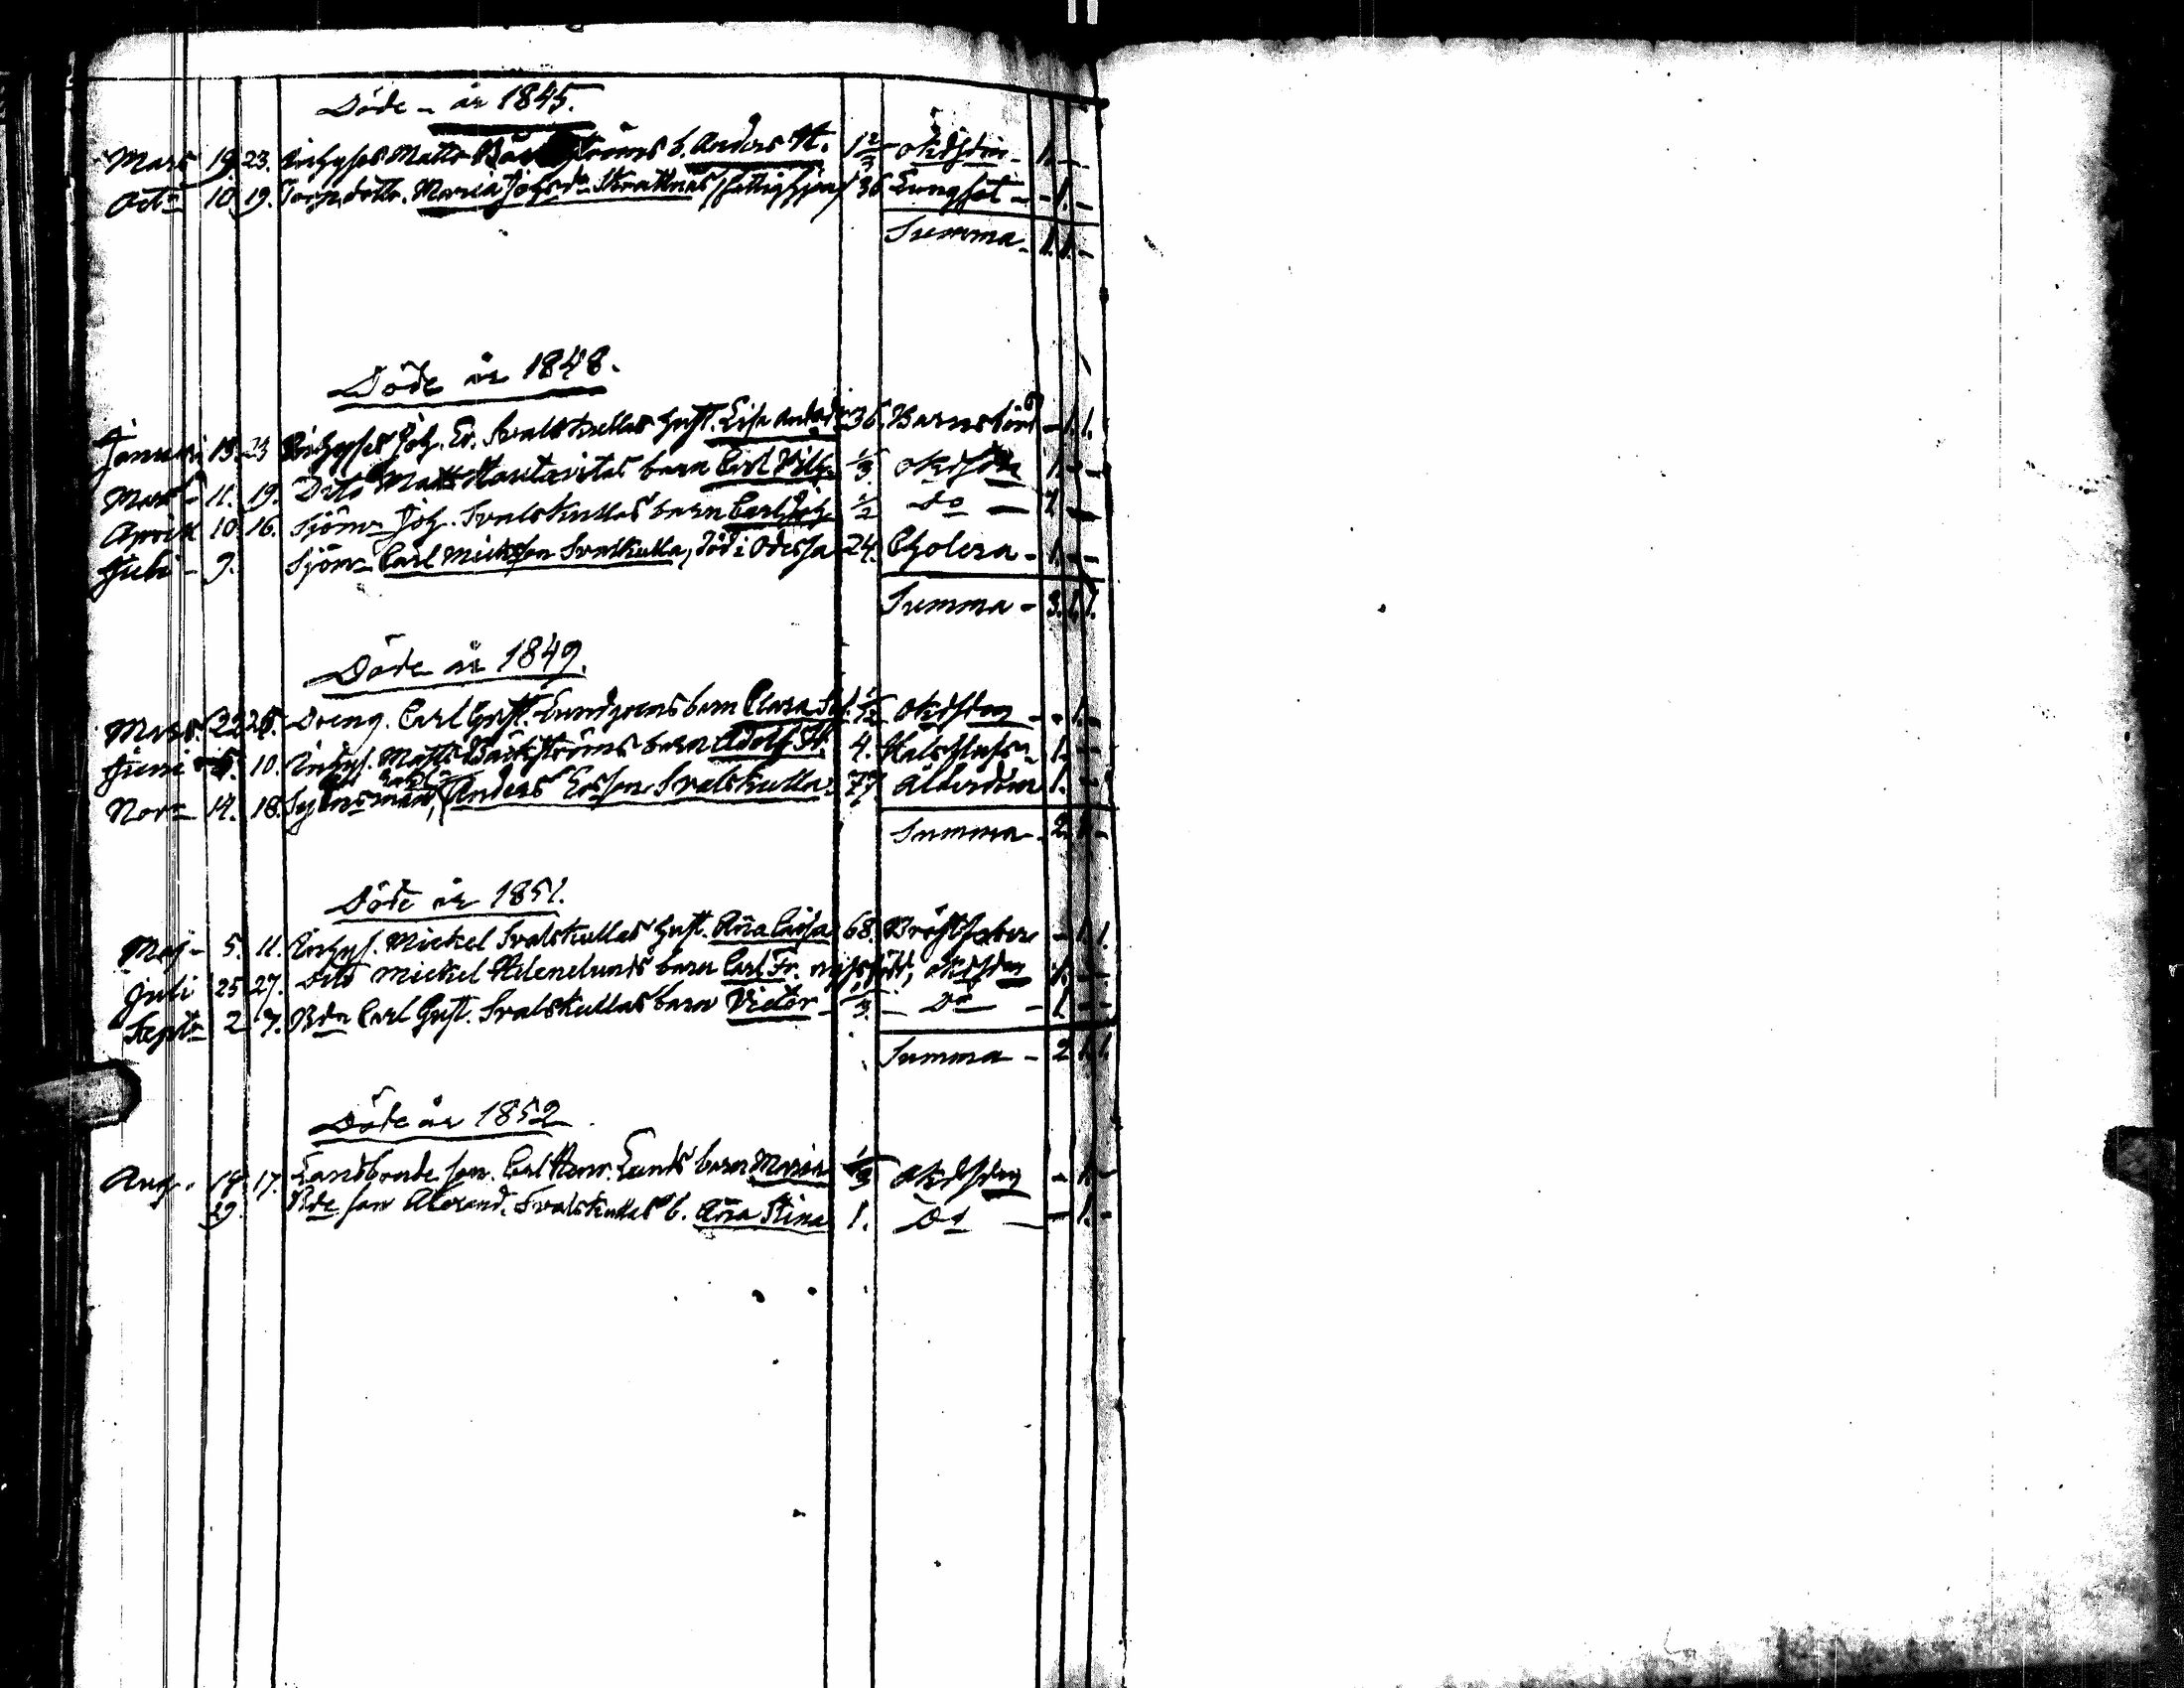 Döde år 1845.
Mars 19. 23. Inhyses Matts Bäckströms b. Anders H. 1 2/3 okd sdm 1. - -
Octr 10. 19. Torp. dottr. Maria Johsdr Skrattnäs, fattighjon 36 Lungsot - 1. -
Summa 1. 1. -
Döde år 1848.
Januari 13. 23 Inhyses Joh. Er. Svalskullas hust. Lisa Andsdr 36. Barnsbörd - 1. 1.
Mars 11. 19. Dito Matts barn Carl Vilh. 1/3 okd sdm 1. - -
April 10. 16. Sjöm. Joh. Svalskullas barn Carl Joh. 1/2 Do 1 - -
Juli 9. Sjöm. Carl Mickson Svalskulla, död i Odessa 24. Cholera - 1. - -
Summa - 3. 1. 1.
Döde år 1849.
Mars. 22 25. Dreng. Carl Gust. Lundgrens barn Clara 1/2 okd sdm - - 1. -
Juni 5. 10. Inhys. Matts Bäckströms barn Adolf H. 4. Halsflussn 1. - -
Novr 14. 18. Anders Ersson Svalskulla 77. Ålderdom 1. - -
Summa - 2. 1. -
Döde år 1851.
Maj - 5. 11. Inhys. Mickel Svalskullas hust. Aña Caisa 68. Bröstfeber - 1. 1.
Juli 25 27. Dito Mickel Helenelunds barn Carl Fr. nyssfödd, okd sdm 1. - -
Septr 2 7. Bdn Carl Gust. Svalskullas barn Victor - 1/3 - Do - 1. - -
Summa - 2 1. 1.
Döde år 1852
Aug. 14. 17. Landbonde son. Carl Henr. Lunds barn Maria 1/3 okd sdm - 1. -
29. Bde son Alexand. Svalskullas b. Aña Stina 1. Do - 1. -